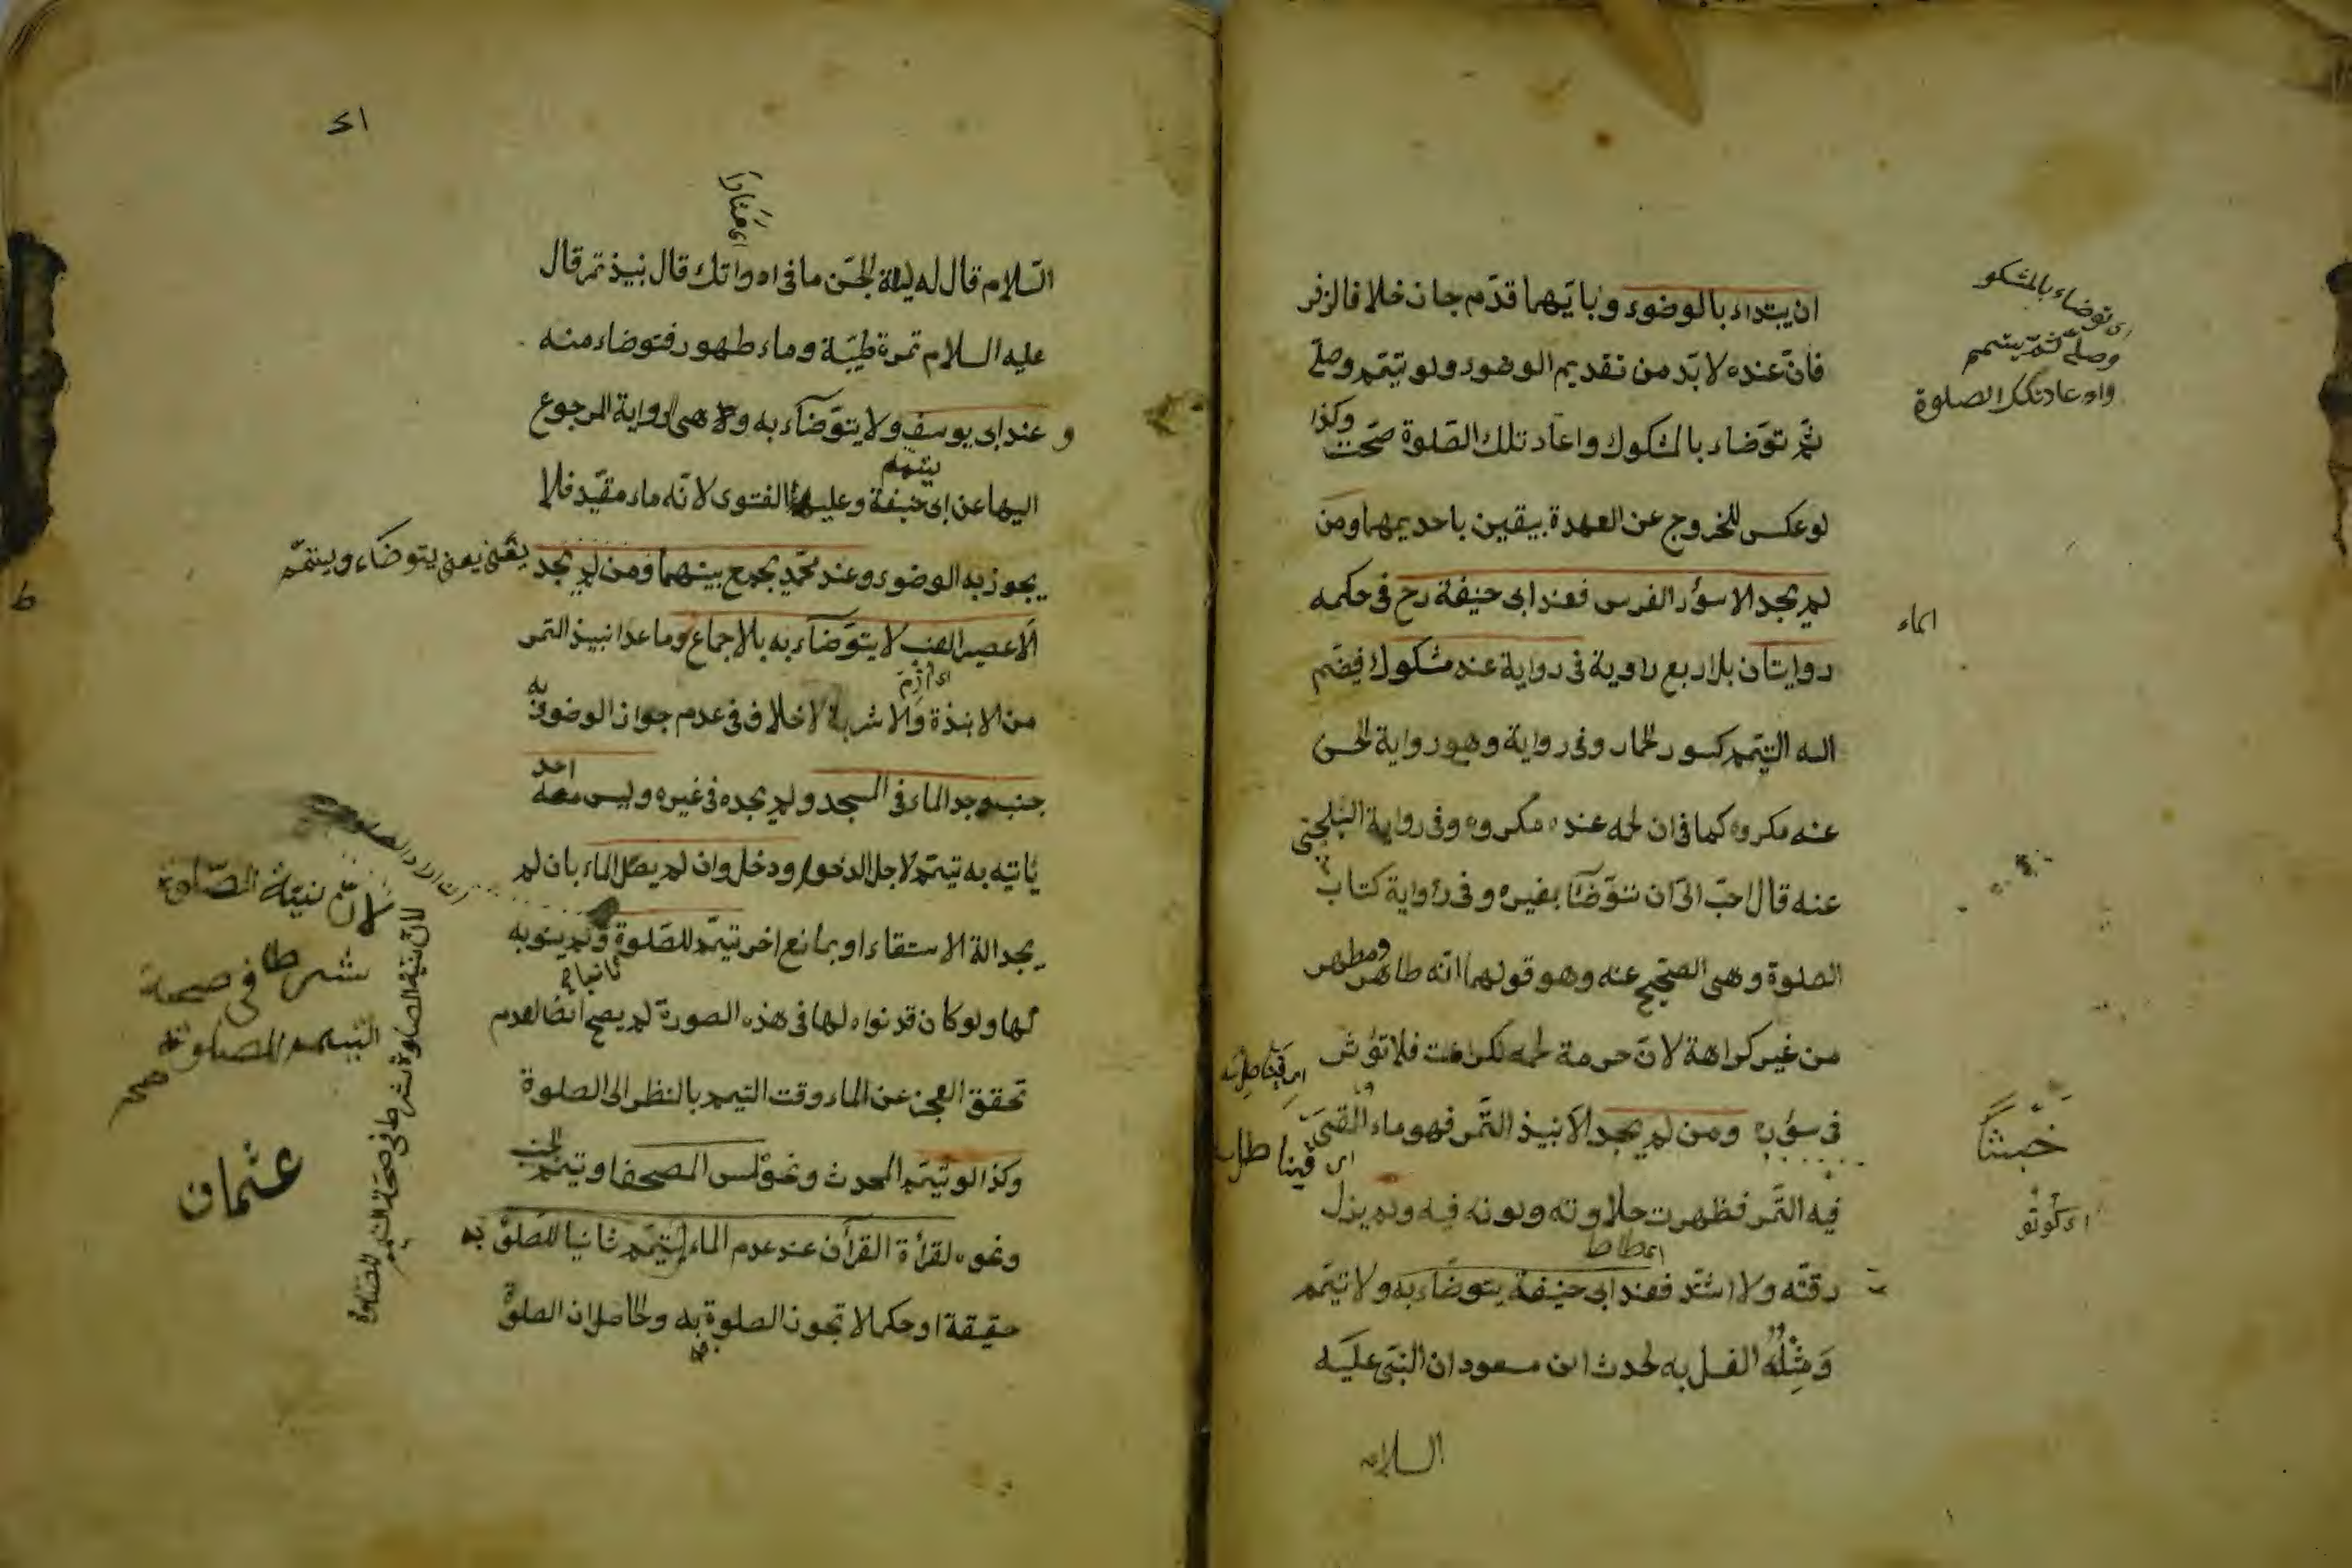 ان يبتداء بالوضوء وبايهما قدم جاز خلافا لزفر
فان عنده لابد من تقديم الوضوء ولو تيمم وصلى
ثم توضاء بالمشكوك واعاد تلك الصلوة صحت وكذا
لو عكس للخروج عن العهدة بيقين باحديهما ومن
لم يجد الا سؤر الفرس فعند ابى حنيفة رح فى حكمه
روايتان بل اربع رواية فى رواية عنه مشكوك فيضم
اليه التيمم كسور الحمار وفى رواية وهو رواية الحسن
عنه مكروه كما فى ان لحمه عنده مكروه وفى رواية البلخى
عنه قال احب الى ان نتوضأ بغيره وفى رواية كتاب
الصلوة وهى الصحيح عنه وهو قولهما انه طاهر ومطهر
من غير كراهة لان حرمة لحمه لكرامته فلا تؤثر
فى سؤره ومن لم يجد الا نبيذ التمر فهو ماء القى
فيه التمر فظهرت حلاوته ولونه فيه ولم يزل
رقته ولا اشتد فعند ابى حنيفة يتوضاء به ولا تيمم
ومثله الغسل به لحدث ابن مسعود ان النبى عليه
السلام
اى توضاء بالمشكو
وصلى ثم يتيمم
واه عاد تلك الصلوة
الماء
خبثا
اى كوتو
السلام قال له ليلة الجن ما فى اداوتك قال نبيذ تمر قال
عليه السلام تمرة طيبة وماء طهور فتوضاء منه
وعند ابى يوسف ولا يتوضاء به وهى الرواية المرجوع
اليها عن ابى حنيفة وعليها الفتوى لانه ماء مقيد فلا
يتيمم
يجوز به الوضوء وعند محمد يجمع بينهما ومن لم يجد
يعنى يتوضاء ويتيمم
الا عصير العنب لا يتوضاء به بالاجماع وما عدا نبيذ التمر
من الانبذة والاشربة لا خلاف فى عدم جواز الوضوء به
جنب وجد الماء فى المسجد ولم يجده فى غيره وليس معه احد
ياتيه به تيمم لاجل الدخول ودخل وان لم يصل الماء بان لم
يجد الة الاستقاء او بمانع اخر تيمم للصلوة ولم ينو به
لها ولو كان قد نواه لها فى هذه الصورة لم يصح ايضا لعدم
تحقق العجز عن الماء وقت التيمم بالنظر الى الصلوة
وكذا لو تيمم المحدث ونحو لمس المصحف او تيمم الجنب
ونحوه لقرأة القرآن عند عدم الماء يتيمم ثانيا للصلوة به
حقيقة او حكما لا تجوز الصلوة به والحاصل ان الصلوة
لان نية الصلوة
شرط فى صحة
التيمم للصلوة
صح
عثمان
لان نية الصلوة شرط فى صحة التيمم للصلوة